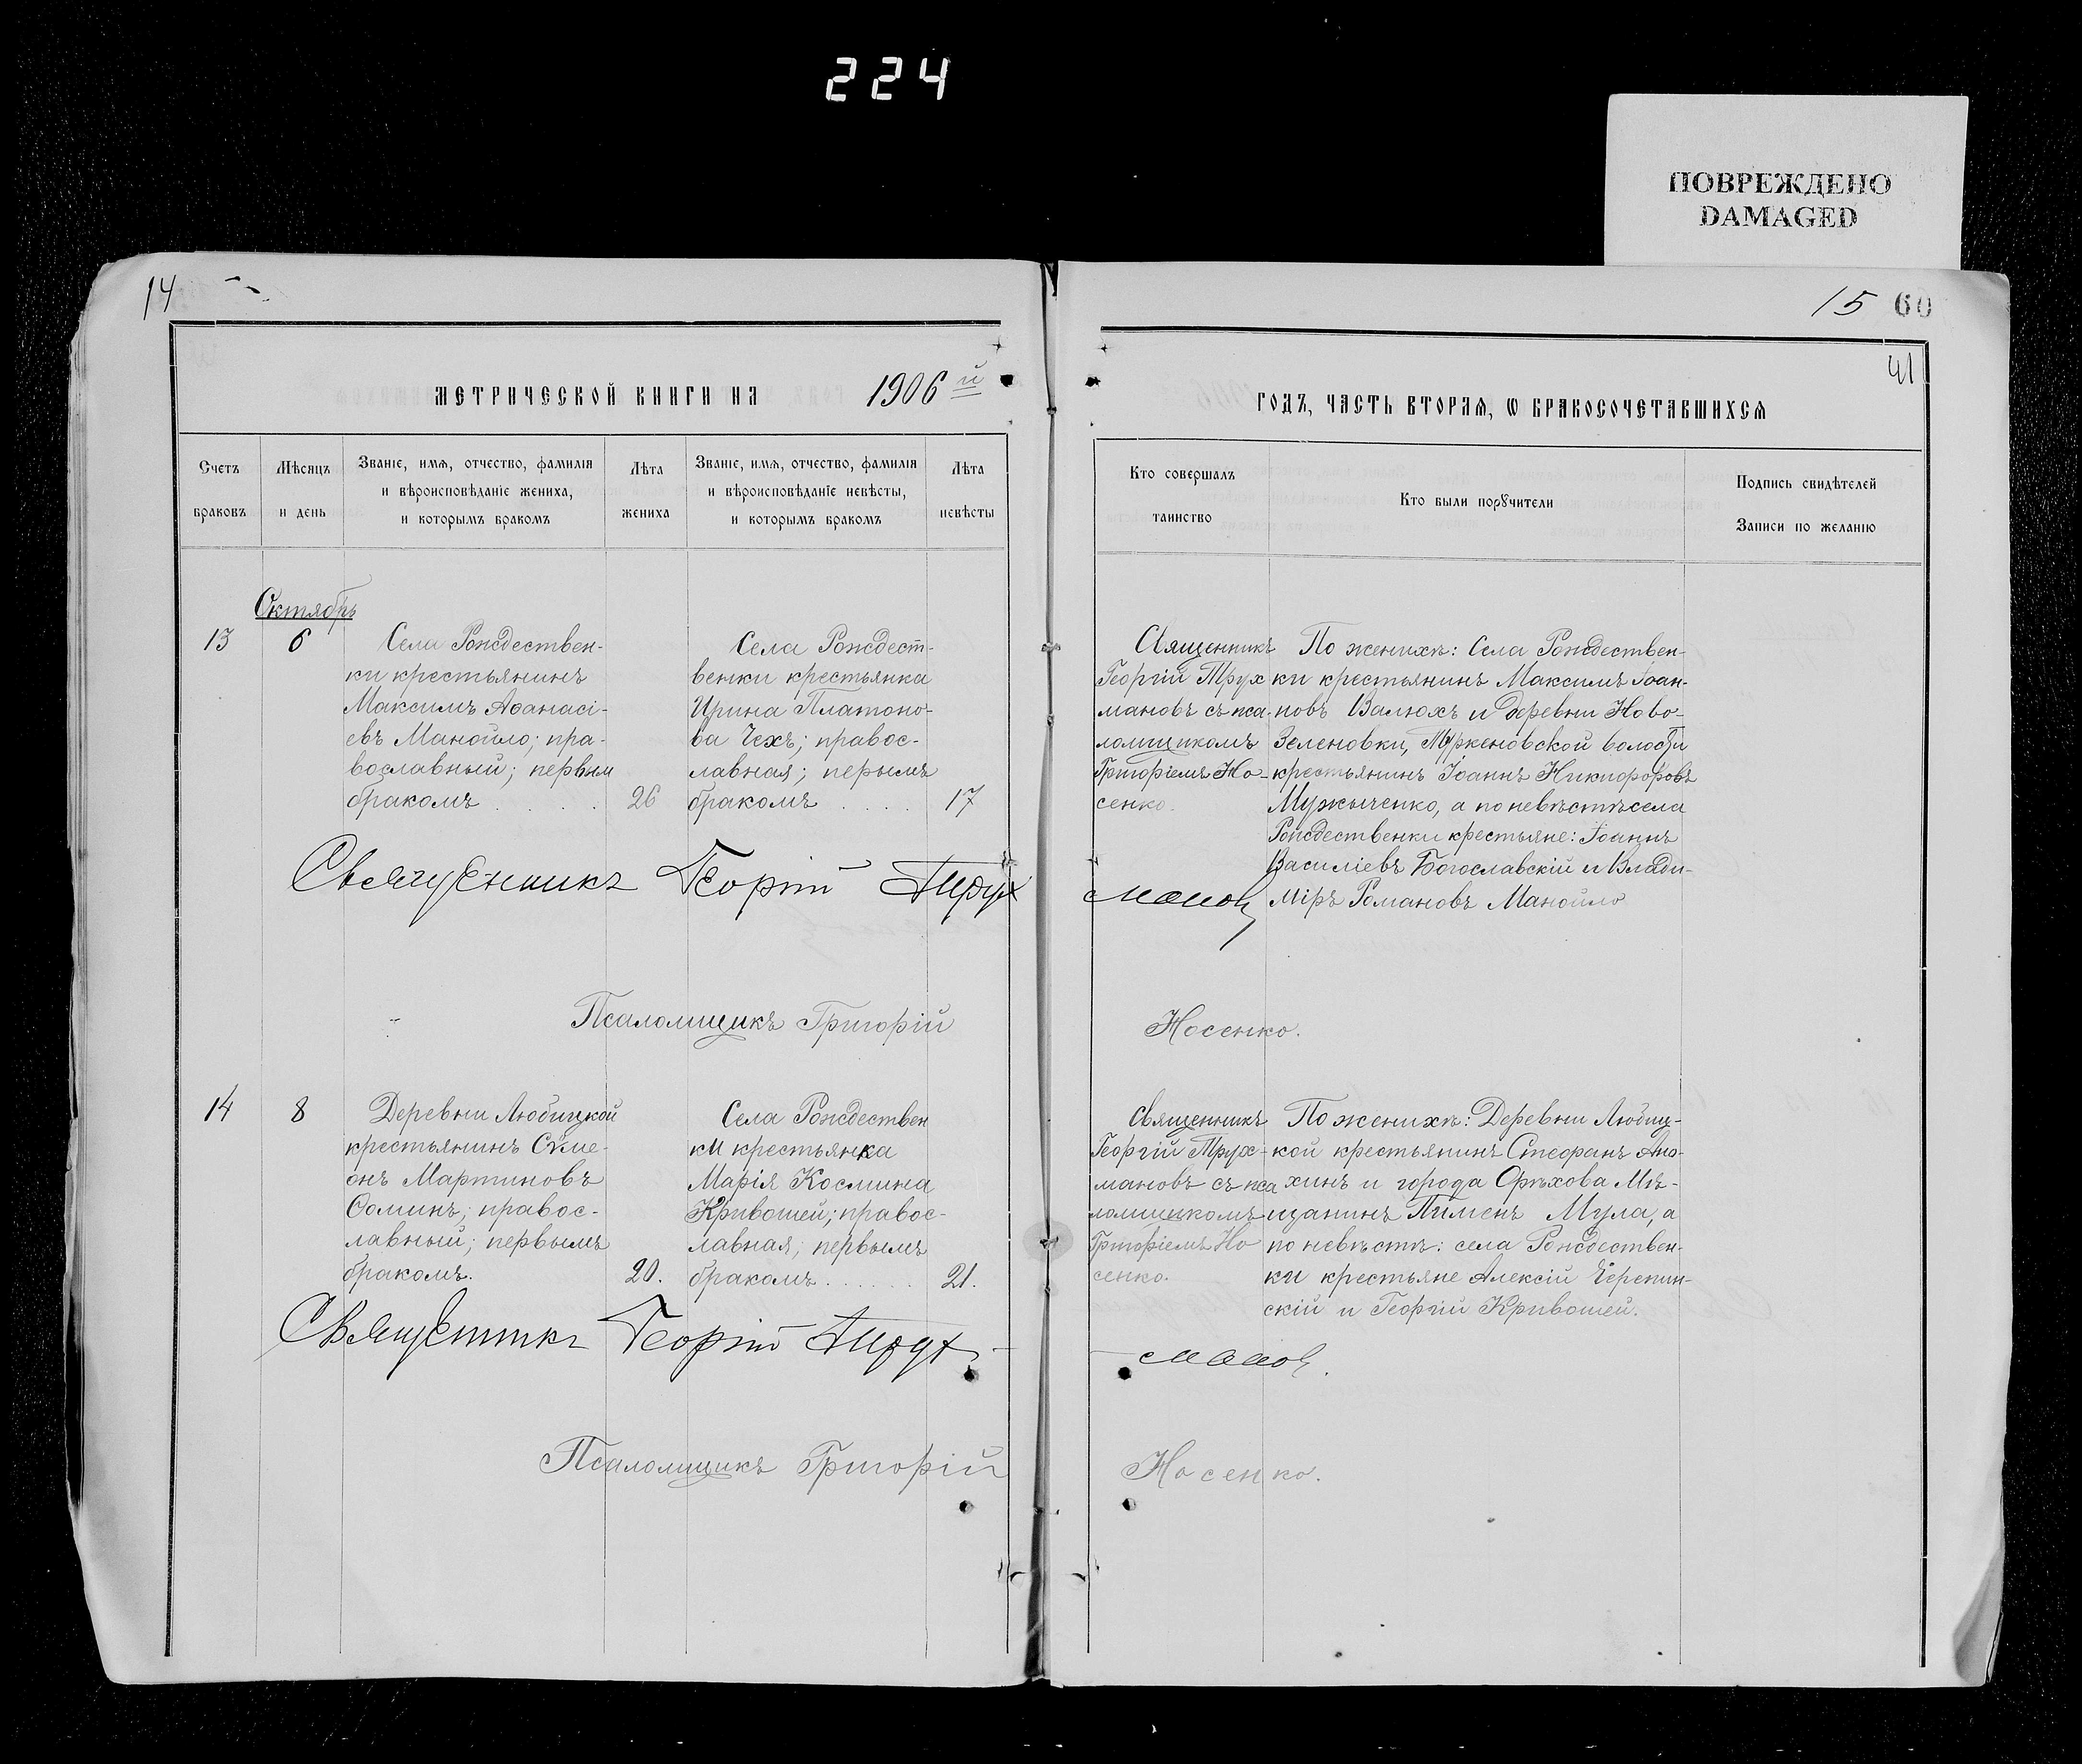 224
ПОВРЕЖДЕНО
DAMAGED
14
15 60
41
МЕТРИЧЕСКОЙ КНИГИ НА 1906й
ГОДЪ, ЧАСТЬ ВТОРАѦ, Ѡ БРАКОСОЧЕТАВШИХСѦ
Счетъ
браковъ
Мѣсяцъ
и день
Званіе, имѧ, отчество, фамилія
и вѣроисповѣданіе жениха,
и которымъ бракомъ
Лѣта
жениха
Званіе, имѧ, отчество, фамилія
и вѣроисповѣданіе невѣсты,
и которымъ бракомъ
Лѣта
невѣсты
Кто совершалъ
таинство
Кто были порꙋчители
Подпись свидѣтелей
Записи по желанію
Октябрь
13
6
Села Рождествен-
ки крестьянинъ
Максимъ Аѳанасі-
евъ Манойло; пра-
вославный; первым
бракомъ . . . .
26
Села Рождест-
венки крестьянка
Ирина Платоно-
ва Чехъ; правос-
лавная; перымъ
бракомъ . . . .
17
Священникъ
Георгій Трух
мановъ съ пса-
ломщикомъ
Григоріемъ Но-
сенко.
По женихѣ: Села Рождествен-
ки крестьянинъ Максимъ Іоан-
новъ Валюхъ и деревни Ново-
Зеленовки, волости
крестьянинъ Іоаннъ Никифоровъ
Мужыченко, а по невѣстѣ села
Рождественки крестьяне: Іоаннъ
Василіевъ Богославскій и Влади-
міръ Романовъ Манойло
Священникъ Георгій Трух
мановъ
Псаломщикъ Григорій
Носенко.
14
8
Деревни Любицкой
крестьянинъ Сѵме-
онъ Мартиновъ
Ѳоминъ; правос-
лавный; первымъ
бракомъ.
20.
Села Рождествен
ки крестьянка
Марія Космина
Кривошей; правос-
лавная; первымъ
бракомъ . . . . .
21.
Священникъ
Георгій Трух-
мановъ съ пса
ломщикомъ
Григоріемъ Но
сенко.
По женихѣ: Деревни Любиц-
кой крестьянинъ Стефанъ Ано-
хинъ и города Орѣхова Мѣ-
щанинъ Пименъ Мула, а
по невѣстѣ: села Рождествен-
ки крестьяне Алексій Черепин-
скій и Георгій Кривошей.
Священникъ Георгій Трух
мановъ.
Псаломщикъ Григорій
Носенко.